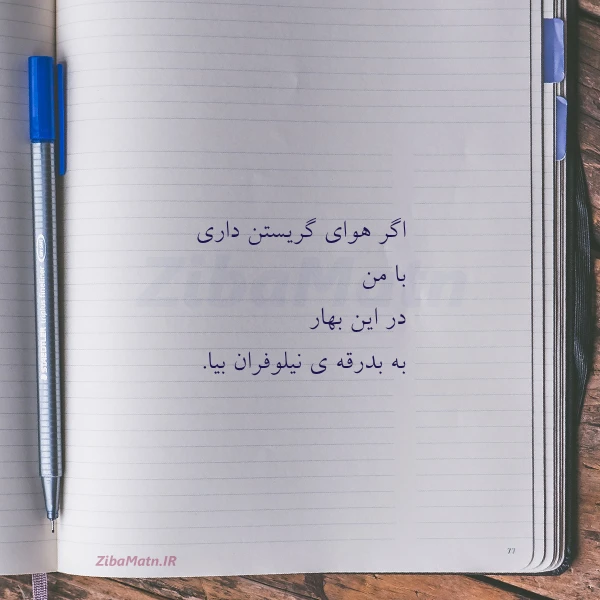 اگر هوای گریستن داری
با من
در این بهار
به بدرقه ی نیلوفران بیا.
ZibaMatn
ZibaMatn.IR
77